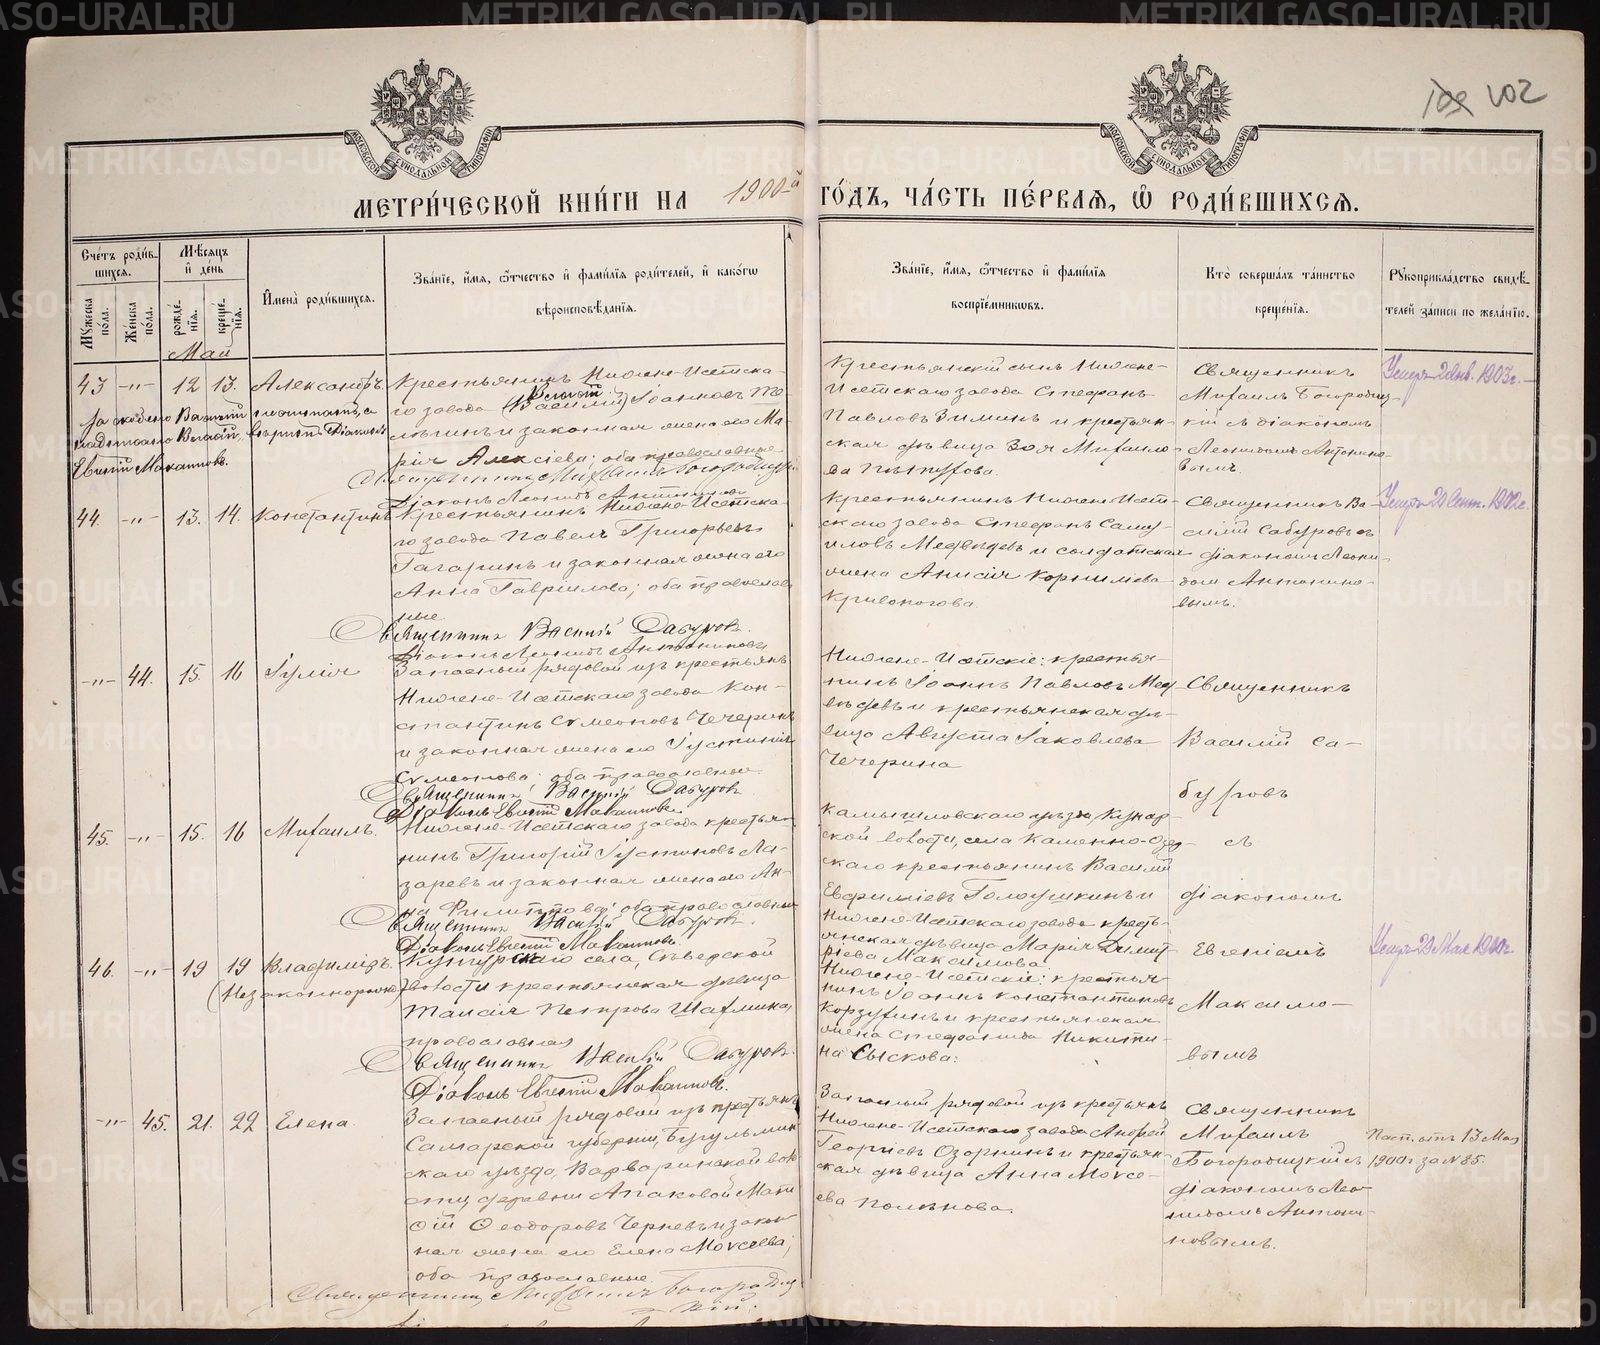 109 102
МОСКОВСКОЙ СѴНОДАЛЬНОЙ ТИПОГРАФІИ
МОСКОВСКОЙ СѴНОДАЛЬНОЙ ТИПОГРАФІИ
МЕТРИ́ЧЕСКОЙ КНИ́ГИ НА 1900-й ГО́ДЪ, ЧА́СТЬ ПЕ́РВАЯ, Ѡ҆ РОДИ́ВШИХСЯ.
Сче́тъ роди́в-
шихся.
Мꙋжеска по́ла.
Же́нска по́ла.
Мѣ́сяцъ
и҆ де́нь
рожде́-
нїя.
креще́-
нїя.
И҆мена̀ роди́вшихся.
Зва́нїе, и҆́мя, ѻ҆́тчество и҆ фами́лїя роди́телей, и҆ како́гѡ
вѣроисповѣ́данїя.
Зва́нїе, и҆́мя, ѻ҆́тчество и҆ фами́лїя
воспрїе́мниковъ.
Кто̀ соверша́лъ та́инство
креще́нїя.
Рꙋкоприкла́дство свидѣ́-
телей за́писи по жела́нїю.
Май
43 -„- 12 13. Александръ
Крестьянинъ Нижне-Исетска-
го завода (Василій) Іоанновъ
и законная жена его Ма-
рія Алексіева; оба православные
Священникъ Михаилъ Богородицкій
Діаконъ Леонидъ Антониновъ
надписано
Евгеній Макаимовъ.
Крестьянскій сынъ Нижне-
Исетскаго завода Стефанъ
Павловъ Зиминъ и крестьян-
ская дѣвица Зоя Михайло-
ва
Священникъ
Михаилъ Богородиц-
кій съ діакономъ
Леонидомъ Антонино-
вымъ.
Умеръ 2 Янв. 1903 г.
44. -„- 13. 14. Константинъ
Крестьянинъ Нижне-Исетска-
го завода Павелъ Григорьевъ
Гагаринъ и законная жена его
Анна Гавріилова; оба православ-
ные
Священникъ Василій Сабуровъ.
Діаконъ Леонидъ Антониновъ
Крестьянинъ Нижне-Исет-
скаго завода Стефанъ Саму-
иловъ Медвѣдевъ и солдатская
жена Анисія Корнилiева
Кривоногова.
Священникъ Ва-
силій Сабуровъ съ
діакономъ Леони-
домъ Антонино-
вымъ.
Умеръ 20 Сент. 1902 г.
-„- 44. 15. 16 Іулія
Запасный рядовой изъ крестьянъ
Нижне-Исетскаго завода Кон-
стантинъ Симеоновъ Чечеринъ
и законная жена его Іустинія
Симеонова; оба православные
Священникъ Василій Сабуровъ
Діаконъ Евгеній Макаимовъ.
Нижне-Исетскіе: крестья-
нинъ Іоаннъ Павловъ Мед-
вѣдевъ и крестьянская дѣ-
вица Августа Іаковлева
Чечерина
Священникъ
Василій Са-
буровъ
съ
діакономъ
Евгеніемъ
Максимо-
вымъ
45. -„- 15. 16 Михаилъ.
Нижне-Исетскаго завода крестья-
нинъ Григорій Іустиновъ Ла-
заревъ и законная жена его Ан-
на Филиппова; оба православные
Священникъ Василій Сабуровъ.
Діаконъ Евгеній Макаимовъ.
Камышловскаго уѣзда Кунар-
ской волости, села Каменно-Озер-
скаго крестьянинъ Василій
Евфиміевъ Голоушкинъ и
Нижне-Исетскаго завода кресть-
янская дѣвица Марія Димит-
ріева Максимова
46. -„- 19 19 Владиміръ
(Незаконнорожд.)
села, Сѣверской
волости крестьянская дѣвица
Таисія Петрова
православная
Священникъ Василій Сабуровъ.
Діаконъ Евгеній Макаимовъ.
Нижне-Исетскіе: крестья-
нинъ Іоаннъ Константиновъ
Корзухинъ и крестьянская
жена Стефанида Никити-
на Сыскова:
Умеръ 29 Мая 1900 г.
-„- 45. 21. 22 Елена
Запасный рядовой изъ крестьянъ
Самарской губерніи, Бугульмин-
скаго уѣзда, Варваринской вол-
сти, деревни Апаковой Мат-
ѳій Ѳеодоровъ и закон-
ная жена его Елена Моѵсеева;
оба православные
Священникъ Михаилъ Богородиц-
кій.
Запасный рядовой изъ крестьянъ
Нижне-Исетскаго завода Андрей
Георгіевъ Озорнинъ и крестьян-
ская дѣвица Анна Моѵсе-
ева Полѣнова.
Священникъ
Михаилъ
Богородицкій съ
діакономъ Лео-
нидомъ Антони-
новымъ.
Пасп. отъ 13 Мая
1900 г за № 85.